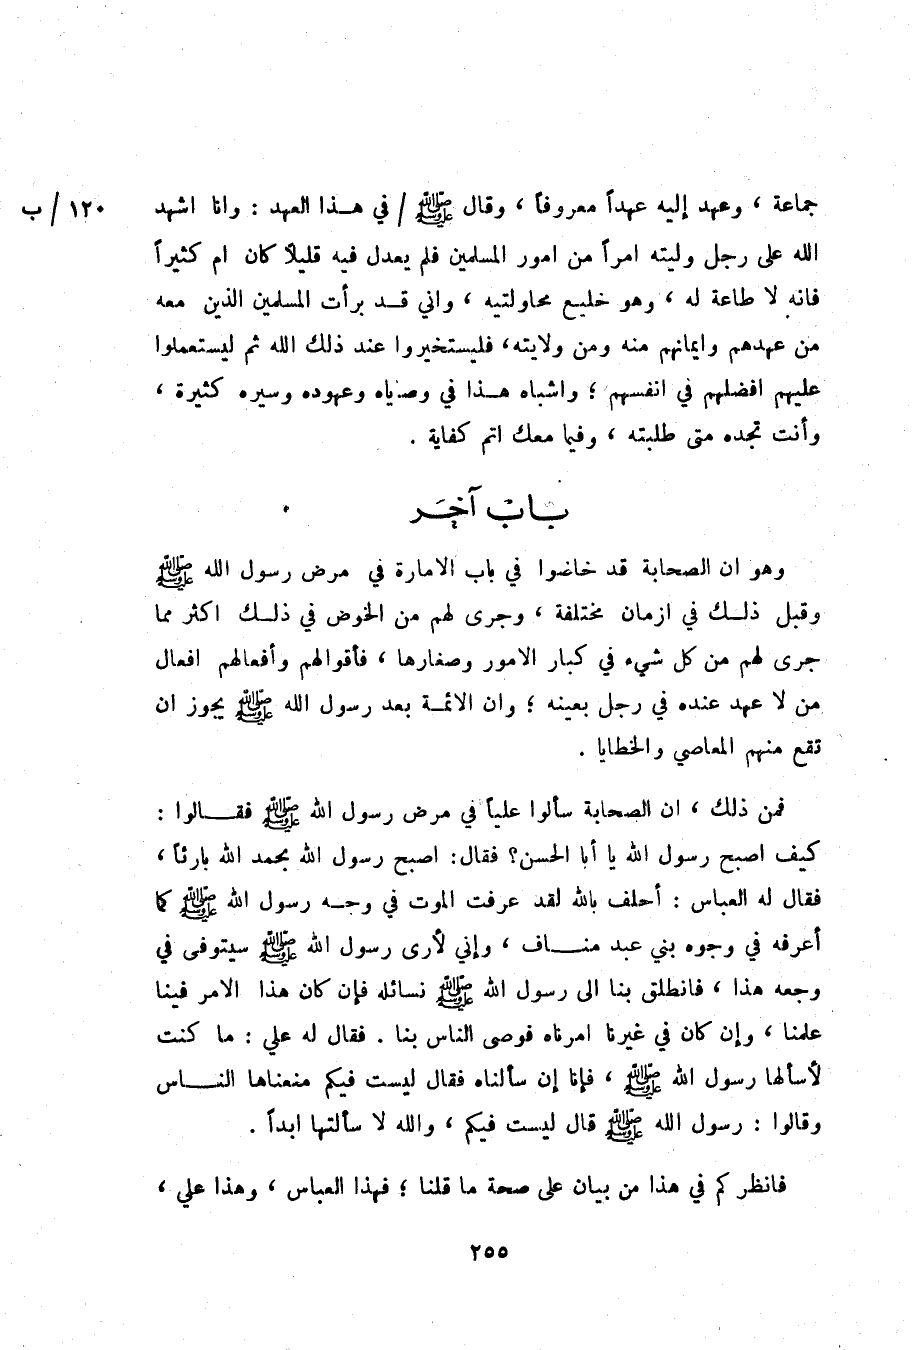 جماعة ، وعهد إليه عهداً معروفاً ، وقال ﷺ / في هــذا العهد : وانا اشهد ١٢٠ / ب
الله على رجل وليته امراً من امور المسلمين فلم يعدل فيه قليلاً كان ام كثيراً
فانه لا طاعة له ، وهو خليع مما وليته ، واني قــد برأت المسلمين الذين معه
من عهدهم وايمانهم منه ومن ولايته، فليستخيروا عند ذلك الله ثم ليستعملوا
عليهم افضلهم في انفسهم ؛ واشباه هــذا في وصاياه وعهوده وسيره كثيرة ،
وأنت تجده متى طلبته ، وفيما معك اتم كفاية .
بــاب آخــر
وهو ان الصحابة قد خاضوا في باب الامارة في مرض رسول الله ﷺ
وقبل ذلــك في ازمان مختلفة ، وجرى لهم من الخوض في ذلــك اكثر مما
جرى لهم من كل شيء في كبار الامور وصغارها ، فأقوالهم وأفعالهم افعال
من لا عهد عنده في رجل بعينه ؛ وان الائمــة بعد رسول الله ﷺ يجوز ان
تقع منهم المعاصي والخطايا .
فمن ذلك ، ان الصحابة سألوا علياً في مرض رسول الله ﷺ فقــالوا :
كيف اصبح رسول الله يا أبا الحسن؟ فقال: اصبح رسول الله بحمد الله بارئاً ،
فقال له العباس : أحلف بالله لقد عرفت الموت في وجــه رسول الله ﷺ كما
أعرفه في وجوه بني عبد منــاف ، وإني لأرى رسول الله ﷺ سيتوفى في
وجعه هذا ، فانطلق بنا الى رسول الله ﷺ نسائله فإن كان هذا الامر فينا
علمنا ، وإن كان في غيرنا امرناه فوصى الناس بنا . فقال له علي : ما كنت
لأسألها رسول الله ﷺ ، فإنا إن سألناه فقال ليست فيكم منعناها النــاس
وقالوا : رسول الله ﷺ قال ليست فيكم ، والله لا سألتها ابداً .
فانظر كم في هذا من بيان على صحة ما قلنا ؛ فهذا العباس ، وهذا علي ،
٢٥٥